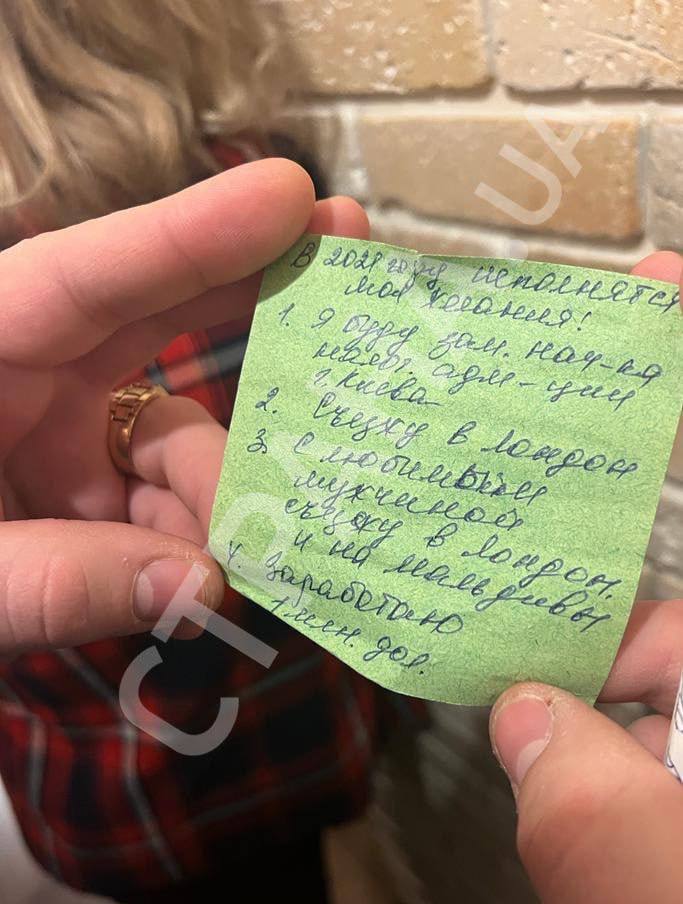 В 2021 году исполнятся
мои желания!
1. Я буду зам. нач-ка
налог. адм-ции
г. Киева
2. Съезжу в Лондон
3. С любимым
мужчиной
съезжу в Лондон.
и на Мальдивы
4. Заработаю
1 млн. дол.
СТРАНА.UA